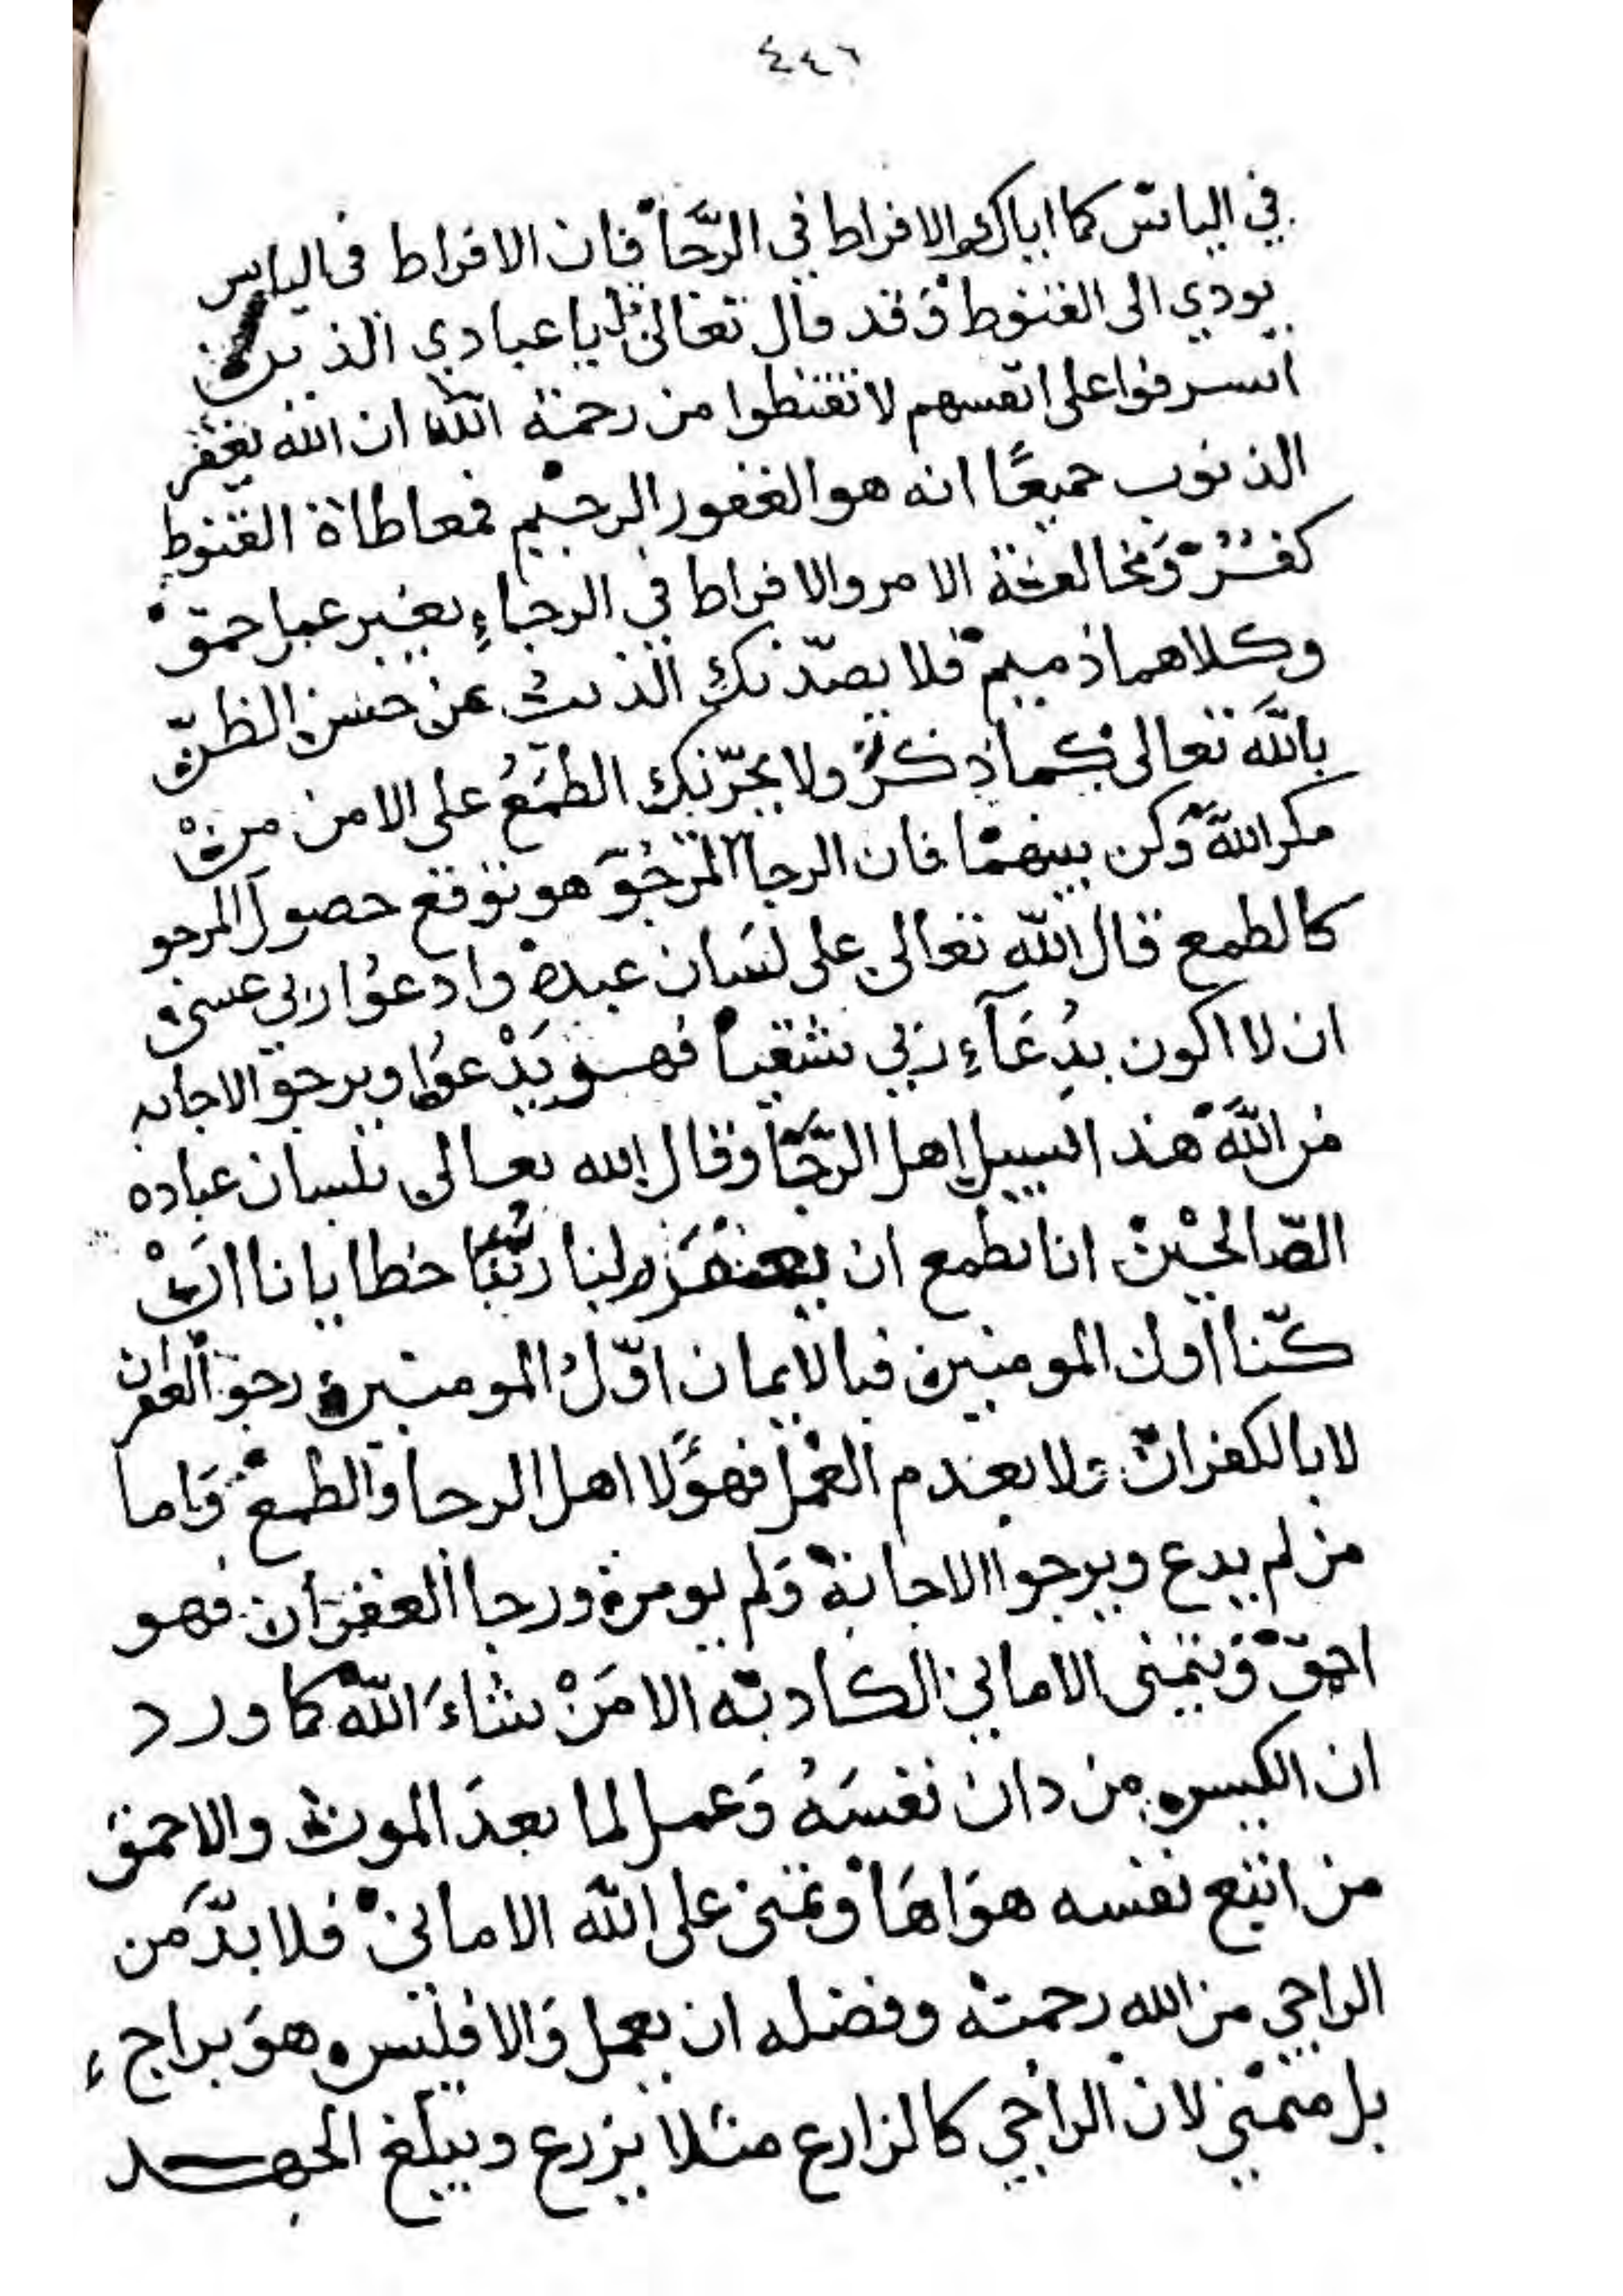 ٤٤٦
في الياس كما اياك والافراط في الرَّجا فان الافراط في الياس
يودي الى القنوط وَقد قال تعالىٰ يا عبادي الذين
اسرفوا على انفسهم لا تقنطوا من رحمة الله ان الله يغفر
الذنوب جميعًا انه هو الغفور الرحيم فمعاطاة القنوط
كفرٌ وَمخالفة الامر والافراط في الرجاءِ بغير عمل حمق
وكلاهما ذميم فلا يصدّنك الذنب عن حسن الظنّ
باللَّه تعالى كما ذكرُ ولا يجرّنك الطمَعُ على الامن من
مكر اللَّه وَكن بينهمَا فان الرجا المرجُوَ هو توقع حصول المرجو
كالطمع قال اللَّه تعالى على لسَان عبده وادعُوا ربي عسى
ان لا اكون بدُعَآءِ ربي شقيا فهو يَدْعوُا ويرجو الاجابه
من اللَّه هذا لسبيل اهل الرَّجَا وقال الله تعالى بلسان عباده
الصّالحيْن انا نطمع ان يغفرَ لنا ربّنا خطايانا انْ
كنّا اول المومنين فبالايمان اوّلُ المومنين رجو الغفران
لا بالكفران ولا بعدم العمل فهوَلا اهل الرجا والطمع وَاما
من لم يدع ويرجوا الاجابة وَلم يومن ورجا الغفران فهو
احمق وَيتمنى الاماني الكاذبه الا مَنْ شاءَ اللَّه كما ورد
ان الكيس من دان نفسَهُ وَعمل لما بعدَ الموت والاحمق
من اتبع نفسه هوَاهَا وتمنى على اللَّه الاماني فلا بدَّ من
الراجي من الله رحمته وفضله ان يعمل وَالا فليس هوَ براجٍ
بل متمني لان الراجي كالزارع مثلا يزرع ويبلغ الجهد